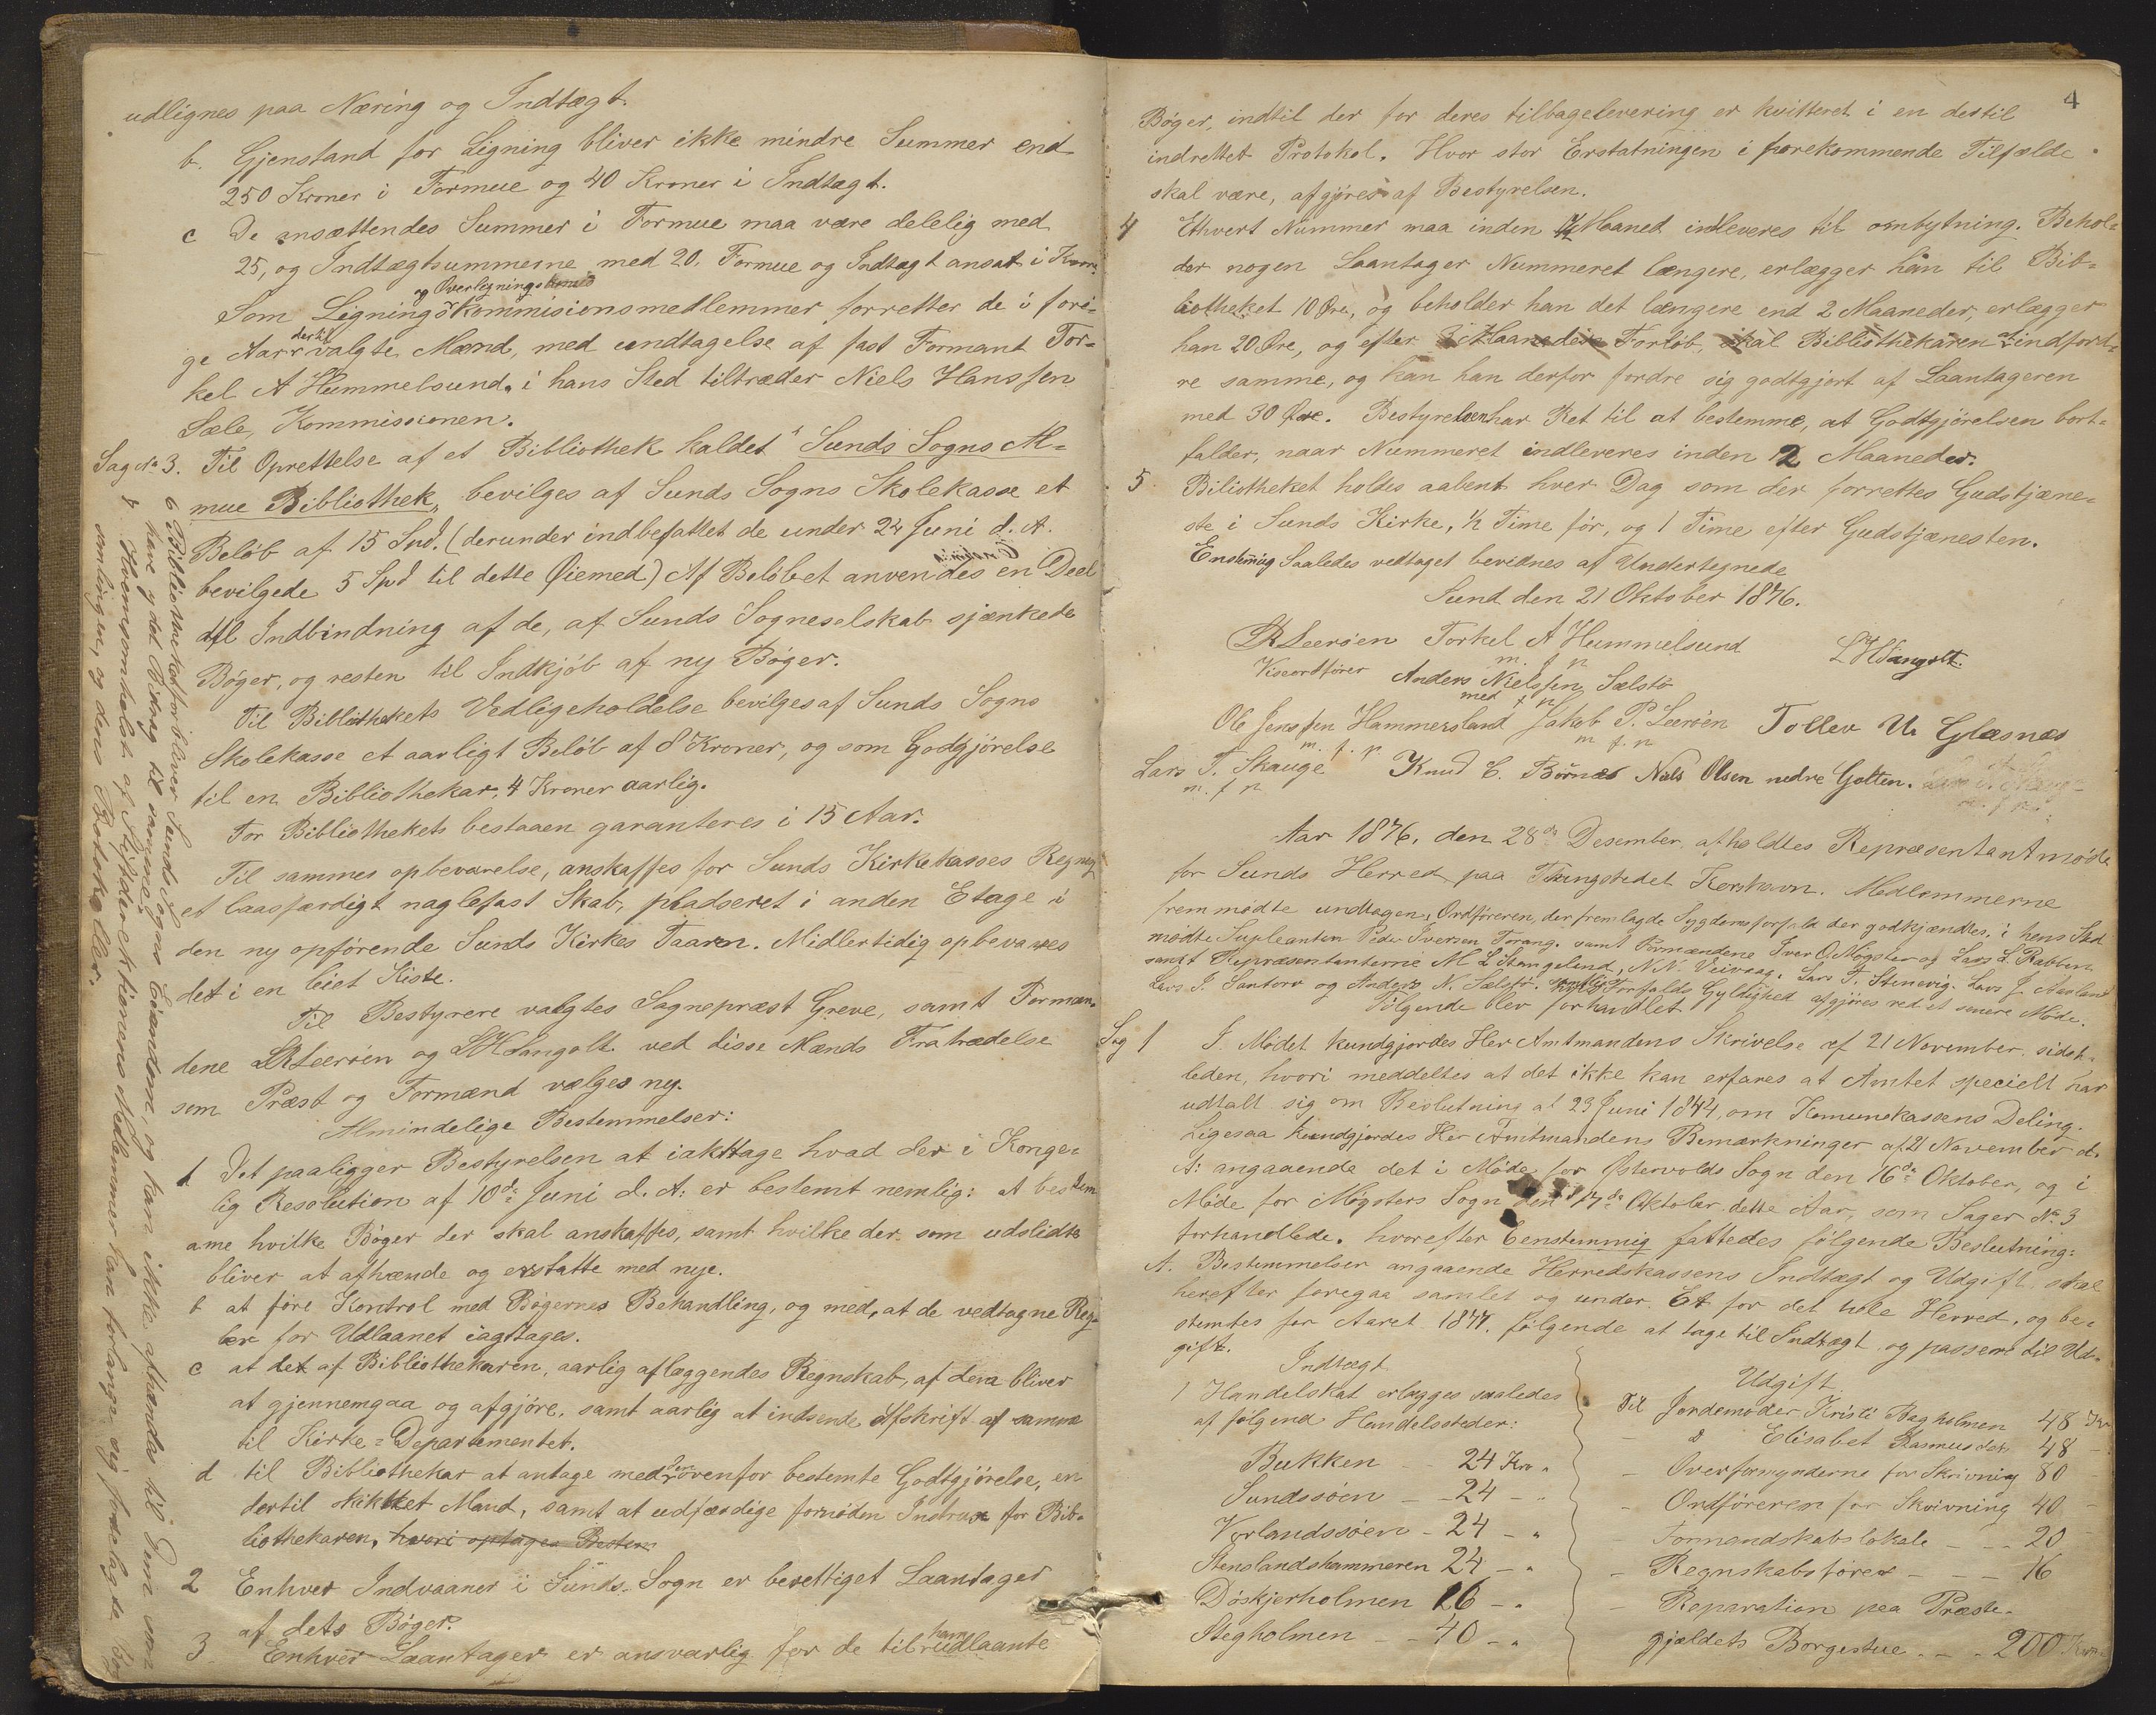 udlignes paa Næring og Indtægt.
b. Gjenstand for Ligning bliver ikke mindre Summer end
250 Kroner i Formue og 40 Kroner i Indtægt.
c De ansættendes Summer i Formue maa være delelig med
25, og Indtægtsummerne med 20. Formue og Indtægt ansat i Kron.
og Overlignings
Som Lignings kommisionsmedlemmer forretter de i fori-
dertil
ge Aar valgte Mænd, med undtagelse af fast Formant Tor-
kel A Hummelsund, i hans Sted tiltræder Niels Hanssen
Sæle, Kommissionen.
Sag No 3. Til Oprettelse af et Bibliothek kaldet "Sunds Sogns Al-
mue Bibliothek" bevilges af Sunds Sogns Skolekasse et
Beløb af 15 Spd. (derunder indbefattet de under 24 Juni d. A.
bevilgede 5 Spd til dette Øiemed) Af Beløbet anvendes en Deel
til Indbindning af de, af Sunds Sogneselskab sjænkede
Bøger, og resten til Indkjøb af ny Bøger.
Til Bibliothekets Vedligeholdelse bevilges af Sunds Sogns
Skolekasse et aarligt Beløb af 8 Kroner, og som Godgjørelse
til en Bibliothekar, 4 Kroner aarlig.
For Bibliothekets bestaaen garanteres i 15 Aar.
Til sammes opbevarelse, anskaffes for Sunds Kirkekasses Regning
et laasfærdigt naglefast Skab, pladseret i anden Etage i
den ny opførende Sunds Kirkes Taarn. Midlertidig opbevares
det i en leiet Kiste.
Til Bestyrere valgtes Sagnepræst Greve, samt Formæn-
dene LR Leerøen og LH Sangolt ved disse Mænds Fratrædelse
som Præst og Formænd vælges ny.
Almindelige Bestemmelser:
1 Det paaligger Bestyrelsen at iakttage hvad der i Konge-
lig Resolution af 10de Juni d. A. er bestemt nemlig: at bestem
ame hvilke Bøger der skal anskaffes, samt hvilke der som udslidte
bliver at afhænde og erstatte med nye.
b at føre Kontrol med Bøgernes Behandling, og med, at de vedtagne Reg-
ler for Udlaanet iagttages.
c at det af Bibliothekaren, aarlig aflæggendes Regnskab, af dem bliver
at gjennemgaa og afgjøre, samt aarlig at indsende Afskrift af samme
til Kirke-Departementet.
d til Bibliothekar at antage med den ovenfor bestemte Godtgjørelse, en
dertil skikket Mand, samt at udfærdige fornøden Instrux for Bib-
liothekaren, hvori optages Bestem
2 Enhver Indvaaner i Sunds Sogn er berettiget Laantager
af dets Bøger.
3 Enhver Laantager er ansvarlig for de til ham udlaante
6 Bibliotheket forbliver Sunds Sogns Eiendom, og kan ikke afhændes til Dem som
have ydet Bidrag til samme.
7 Hvemsomhelst af Stiftsdirektionens Medlemmer kan forlange sig forelagde Bog
samlingen, og dens Protokoller.
4
Bøger, indtil der for deres tilbagelevering er kvitteret i en dertil
indrettet Protokol. Hvor stor Erstatningen i forekommende Tilfælde
skal være, afgjøres af Bestyrelsen.
4 Ethvert Nummer maa inden 1 Maaned indleveres til ombytning. Behol-
der nogen Laantager Nummeret længere, erlægger han til Bib-
liotheket 10 Øre, og beholder han det længere end 2 Maaneder, erlægger
han 20 Øre, og efter 3 Maaneders Forløb, skal Bibliothekaren indford-
re samme, og kan han derfor fordre sig godtgjort af Laantageren
med 30 Øre. Bestyrelsen har Ret til at bestemme, at Godtgjørelsen bort-
falder, naar Nummeret indleveres inden 2 Maaneder.
5 Biliotheket holdes aabent hver Dag som der forrettes Gudstjæne-
ste i Sunds Kirke, ½ Time før, og 1 Time efter Gudstjænesten.
Enstemig Saaledes vedtaget bevidnes af Undertegnede
Sund den 21 Oktober 1876.
LR Leerøen Torkel A Hummelsund LH Sangolt.
Viseordfører m. f. p
Anders Nielssen Sælstø
med f p
Ole Jenssen Hammersland Jakob P. Leerøen Tollev U. Glæsnæs
m. f. p. m f. p
Lars T. Skauge Knud C. Børnæs Nils Olsen nedre Golten.
m. f p
Aar 1876, den 28de Desember, afholdtes Repræsentantmøde
for Sunds Herred paa Thingstedet Korshavn. Medlemmerne
fremmødte undtagen, Ordføreren, der fremlagde Sygdomsforfald der godkjændtes, i hens Sted
mødte Supleanten Peder Iversen Torang, samt Formændene Iver O. Møgster og Lars L. Rabben
samt Repræsentanterne M L Stangelend, N.N. Veivaag, Lars T. Stenevig, Lars J. Aasland
Lars J. Santorv og Anders N. Sælstø. Forfalds Gyldighed afgjøres ved et senere Møde.
Følgende blev forhandlet
Sag 1 I Mødet kundgjordes Her Amtmandens Skrivelse af 21 November sidst-
leden, hvori meddeltes at det ikke kan erfares at Amtet specielt har
udtalt sig om Beslutning af 23 Juni 1844, om Komunekassens Deling.
Ligesaa kundgjordes Her Amtmandens Bemærkninger af 21 November d.
A: angaaende det i Møde for Østervolds Sogn den 16de Oktober, og i
Møde for Møgsters Sogn den 17de Oktober dette Aar, som Sager No 3
forhandlede, hvorefter Eenstemmig fattedes følgende Beslutning:
A. Bestemmelser angaaende Herredskassens Indtægt og Udgift skal
herefter foregaa samlet og under Et for det hele Herred, og be-
stemtes for Aaret 1877, følgende at tage til Indtægt og passere til Ud-
gift.
Indtægt
1 Handelskat erlægges saaledes
af følgend Handelssteder:
Bukken - - 24 Kr. "
Sundssøen - - 24 - "
Vorlandssøen - 24 - "
Stenslandshammeren 24 - "
Døskjerholmen 16 - "
Stegholmen - - 40 - "
Udgift
Til Jordemoder Kristi Bagholmen 48 Kr
- Elisabet Rasmusdtr 48 -
- Overformynderne for Skrivning 80 -
- Ordføreren for Skrivning 40 -
- Formandskabslokale - - - 20
- Regnskabsfører - - - 16
- Reparation paa Præste-
gjældets Borgestue - - - 200 Kron